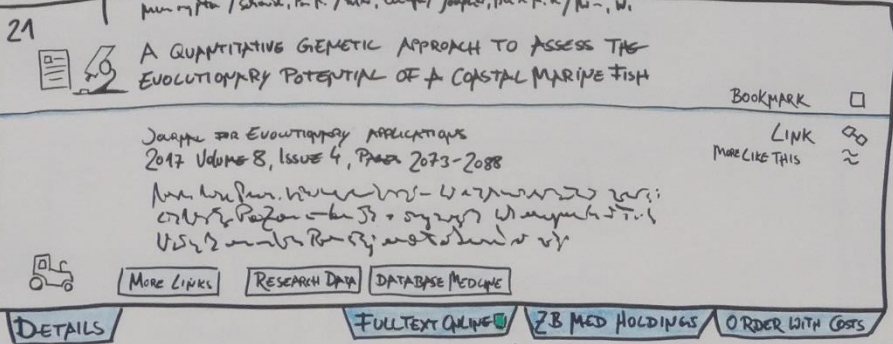 21
A QUANTITATIVE GENETIC APPROACH TO ASSESS THE
EVOLUTIONARY POTENTIAL OF A COASTAL MARINE FISH
BOOKMARK
JOURNAL FOR EVOLUTIONARY APPLICATIONS
LINK
2017 VOLUME 8, ISSUE 4, PAGES 2073-2088
MORE LIKE THIS
MORE LINKS
RESEARCH DATA
DATABASE MEDLINE
DETAILS
FULLTEXT ONLINE
ZB MED HOLDINGS
ORDER WITH COSTS